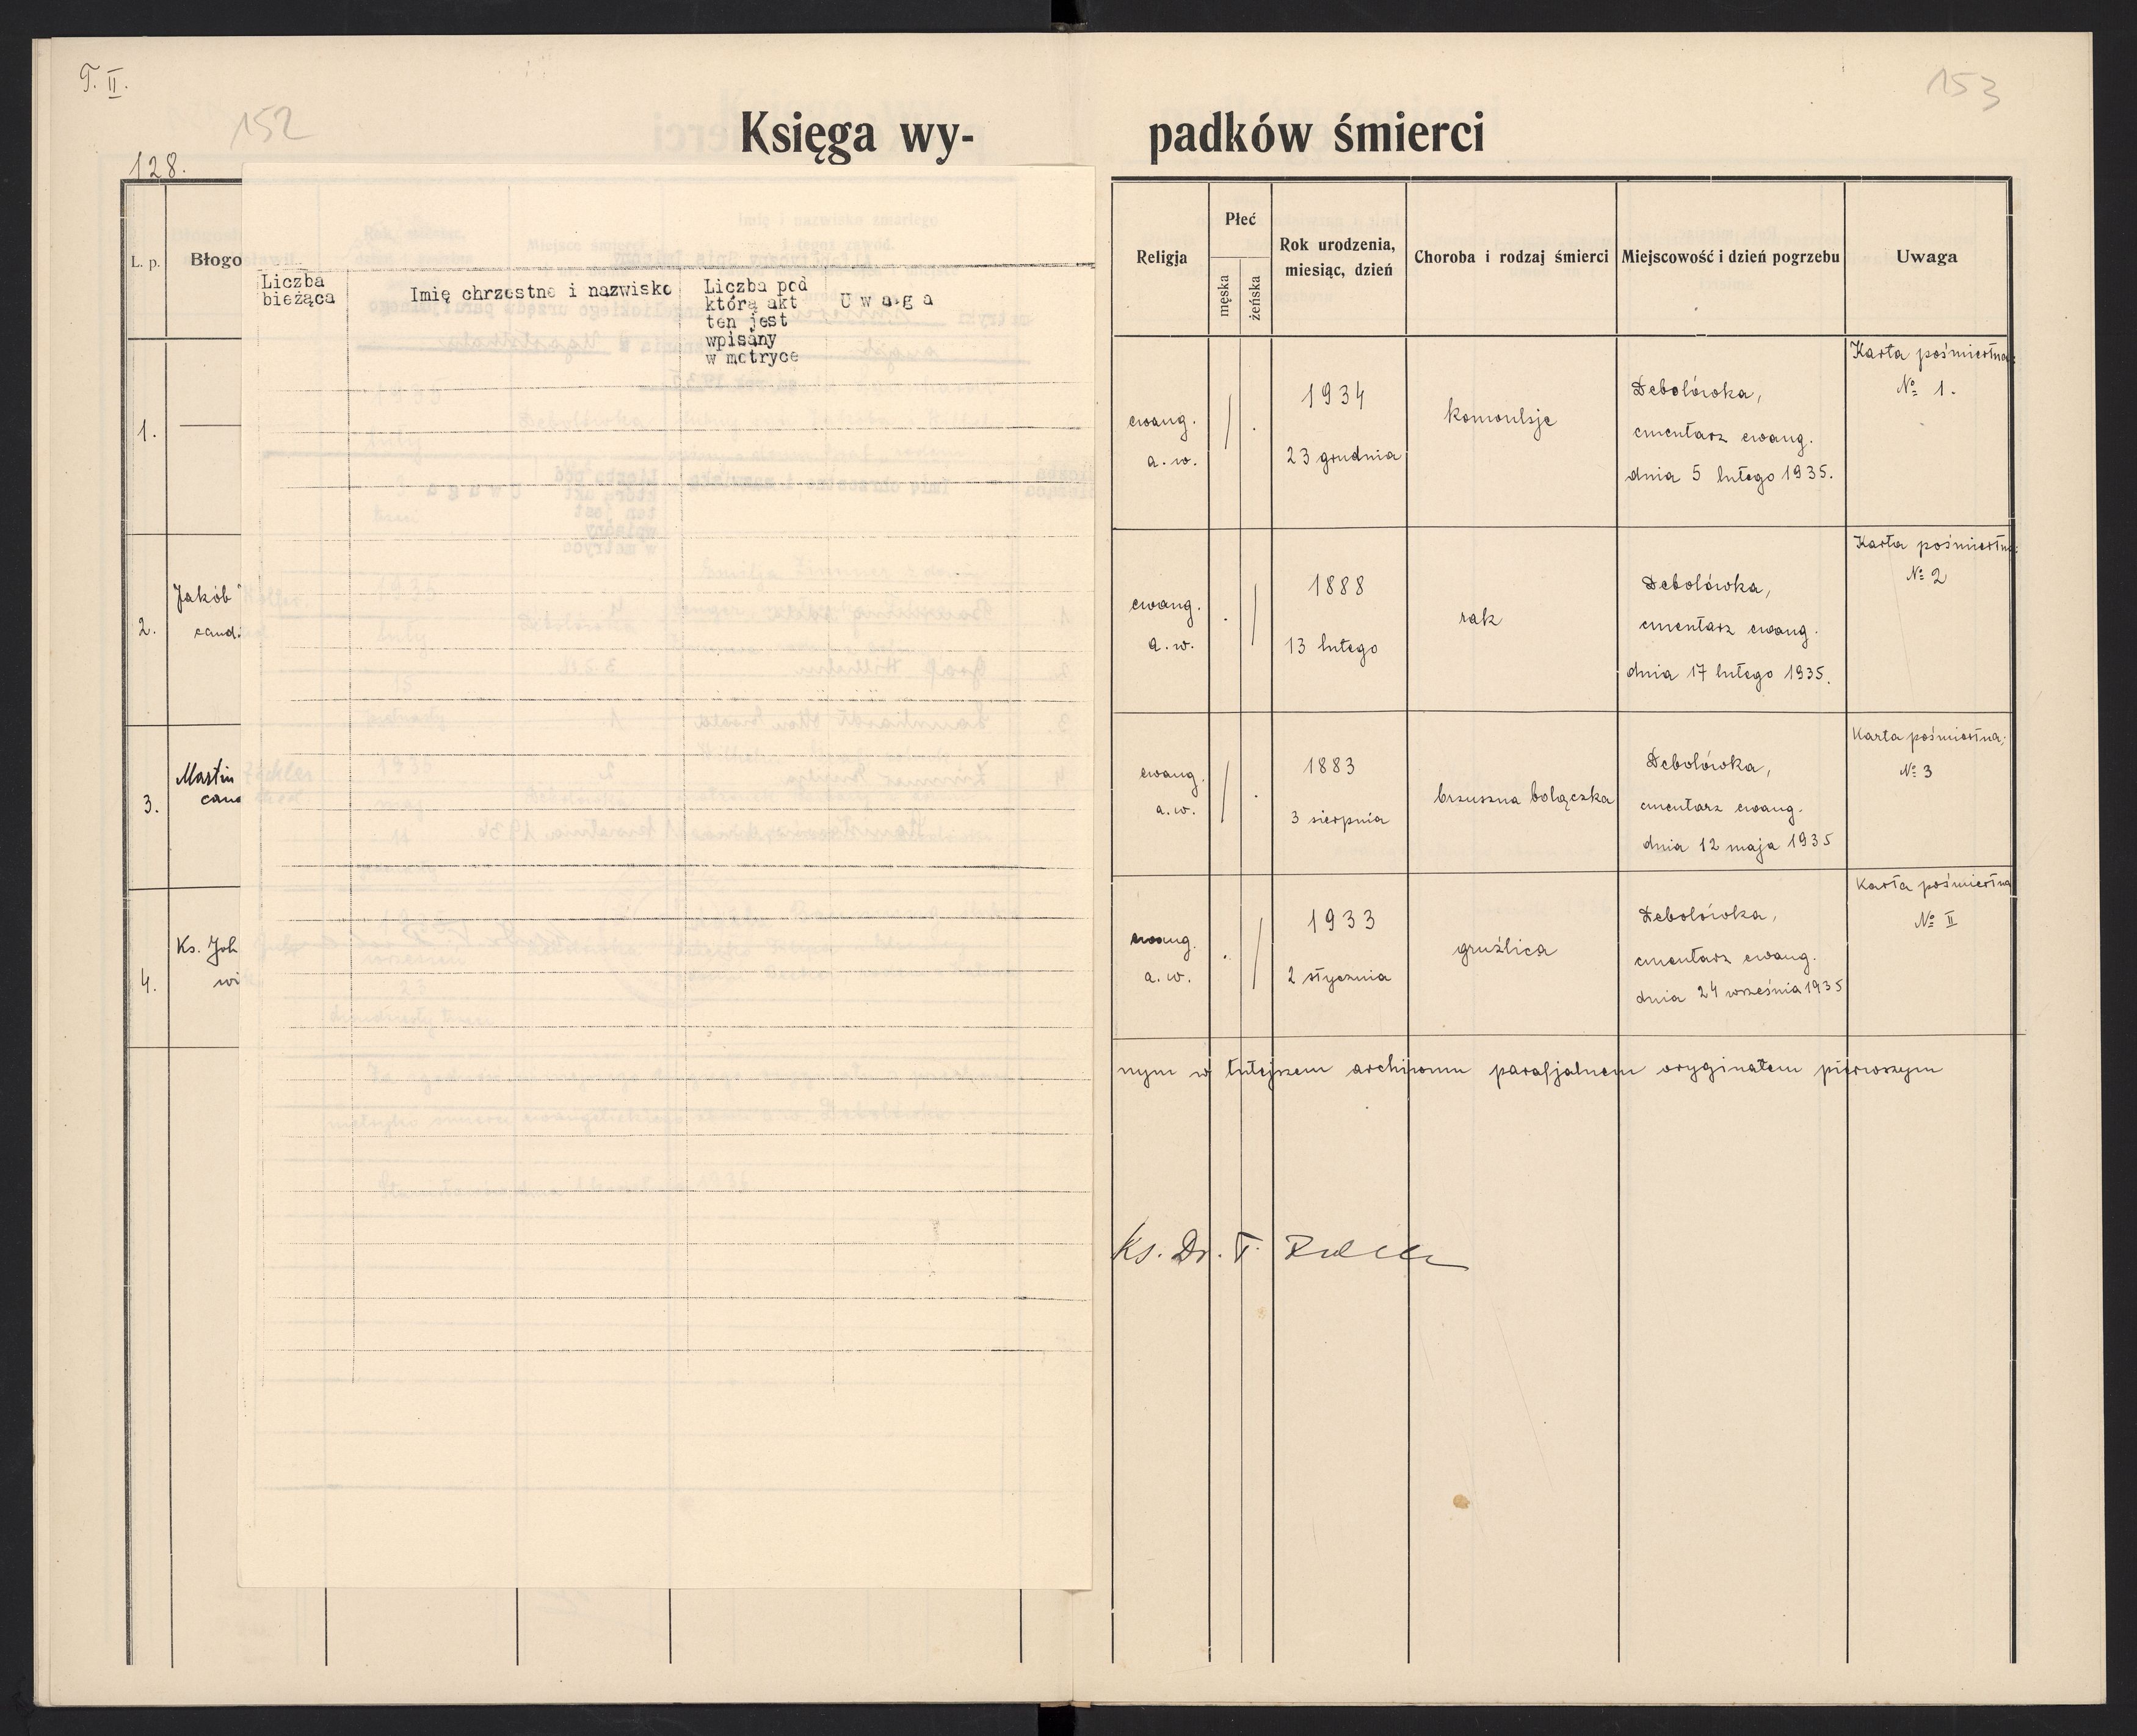 T. II.
152
153
Księga wy-
padków śmierci
128.
L. p.
Błogo
Liczba
bieżąca
Imię chrzestne i nazwisko
Liczba pod
którą akt
ten jest
wpisany
w metryce
U w a g a
1.
2.
Jakób
cand.
3.
Martin
cand
4.
Ks. Joh
wi
Religja
Płeć
męska
żeńska
Rok urodzenia,
miesiąc, dzień
Choroba i rodzaj śmierci
Miejscowość i dzień pogrzebu
Uwaga
ewang.
a. w.
1934
23 grudnia
konwulsje
Debolówka,
cmentarz ewang.
dnia 5 lutego 1935.
Karta pośmiertna:
№ 1.
ewang.
a. w.
1888
13 lutego
rak
Debolówka,
cmentarz ewang.
dnia 17 lutego 1935.
Karta pośmiertna:
№ 2
ewang.
a. w.
1883
3 sierpnia
brzuszna bolączka
Debolówka,
cmentarz ewang.
dnia 12 maja 1935
Karta pośmiertna;
№ 3
ewang.
a. w.
1933
2 stycznia
gruźlica
Debolówka,
cmentarz ewang.
dnia 24 września 1935
Karta pośmiertna
№ II
nym w tutejszem archiwum parafjalnem oryginałem pierwszym
Ks. Dr. T.